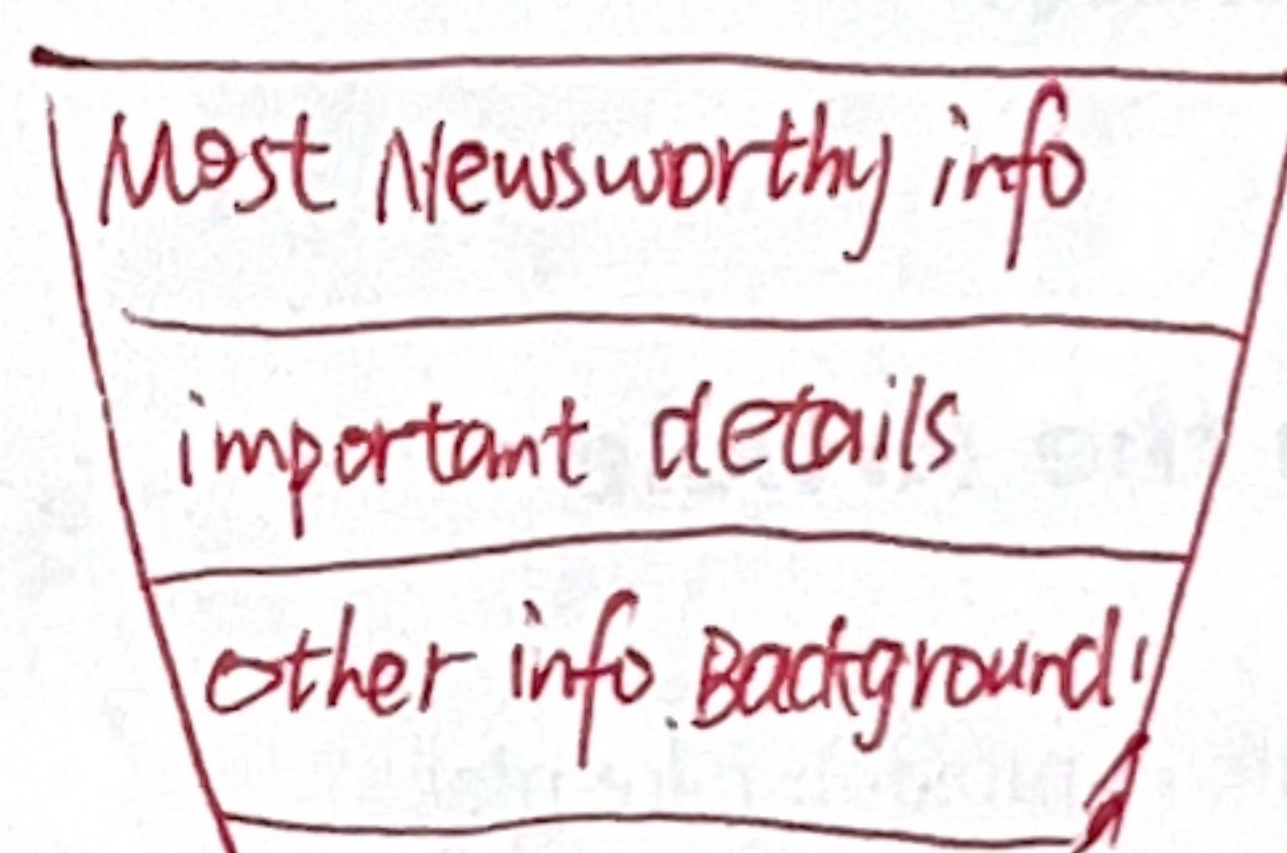 Most Newsworthy info
important details
other info. Background